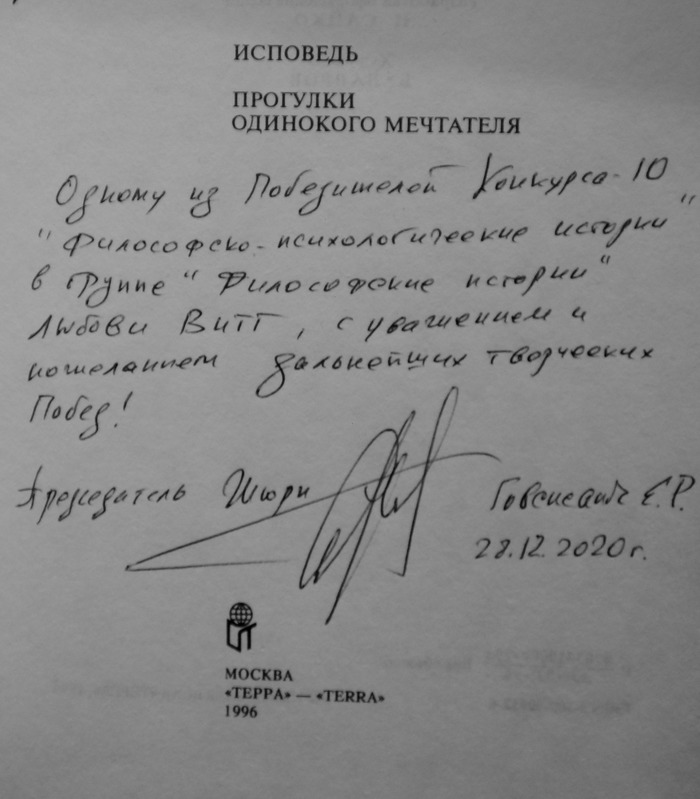 ИСПОВЕДЬ
ПРОГУЛКИ
ОДИНОКОГО МЕЧТАТЕЛЯ
Одному из Победителей Конкурса-10
"Философско-психологические истории"
в Группе "Философские истории"
Любови Витт, с уважением и
пожеланием дальнейших творческих
Побед!
Председатель Жюри Е.Р.
28.12.2020г.
МОСКВА
«ТЕРРА» — «TERRA»
1996